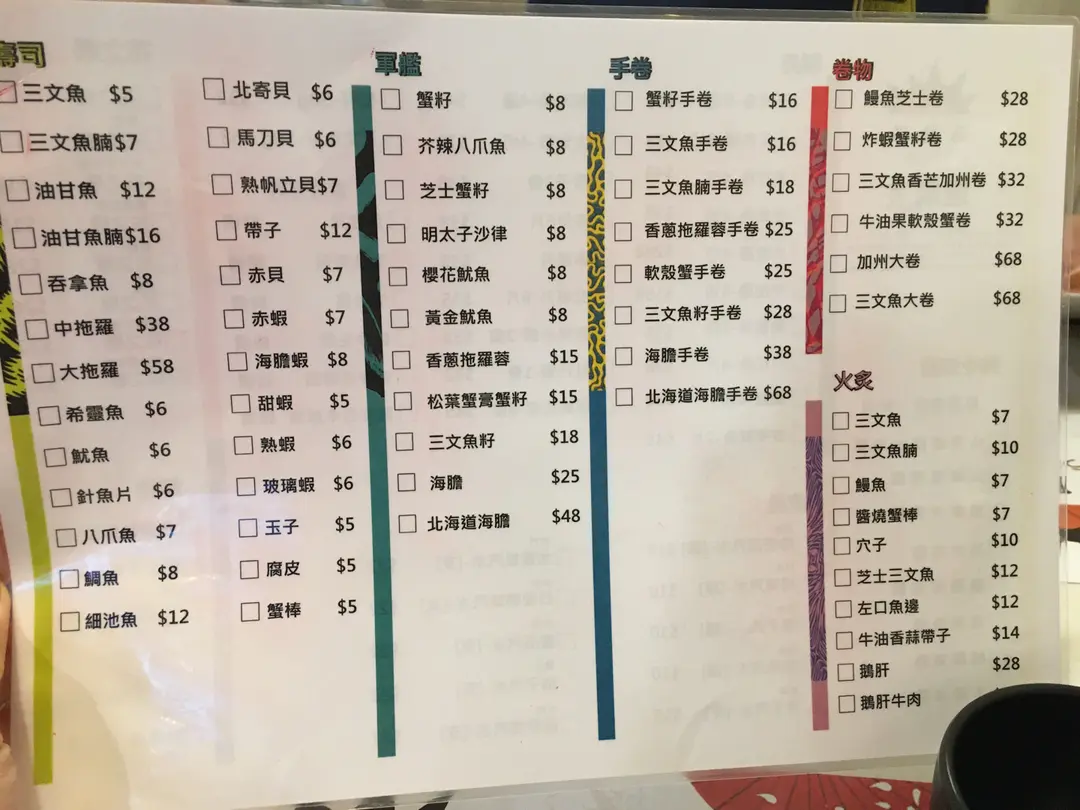 壽司
三文魚 $5
三文魚腩 $7
油甘魚 $12
油甘魚腩 $16
吞拿魚 $8
中拖羅 $38
大拖羅 $58
希靈魚 $6
魷魚 $6
針魚片 $6
八爪魚 $7
鯛魚 $8
細池魚 $12
北寄貝 $6
馬刀貝 $6
熟帆立貝 $7
帶子 $12
赤貝 $7
赤蝦 $7
海膽蝦 $8
甜蝦 $5
熟蝦 $6
玻璃蝦 $6
玉子 $5
腐皮 $5
蟹棒 $5
軍艦
蟹籽 $8
芥辣八爪魚 $8
芝士蟹籽 $8
明太子沙律 $8
櫻花魷魚 $8
黃金魷魚 $8
香蔥拖羅蓉 $15
松葉蟹膏蟹籽 $15
三文魚籽 $18
海膽 $25
北海道海膽 $48
手卷
蟹籽手卷 $16
三文魚手卷 $16
三文魚腩手卷 $18
香蔥拖羅蓉手卷 $25
軟殼蟹手卷 $25
三文魚籽手卷 $28
海膽手卷 $38
北海道海膽手卷 $68
卷物
鰻魚芝士卷 $28
炸蝦蟹籽卷 $28
三文魚香芒加州卷 $32
牛油果軟殼蟹卷 $32
加州大卷 $68
三文魚大卷 $68
火炙
三文魚 $7
三文魚腩 $10
鰻魚 $7
醬燒蟹棒 $7
穴子 $10
芝士三文魚 $12
左口魚邊 $12
牛油香蒜帶子 $14
鵝肝 $28
鵝肝牛肉